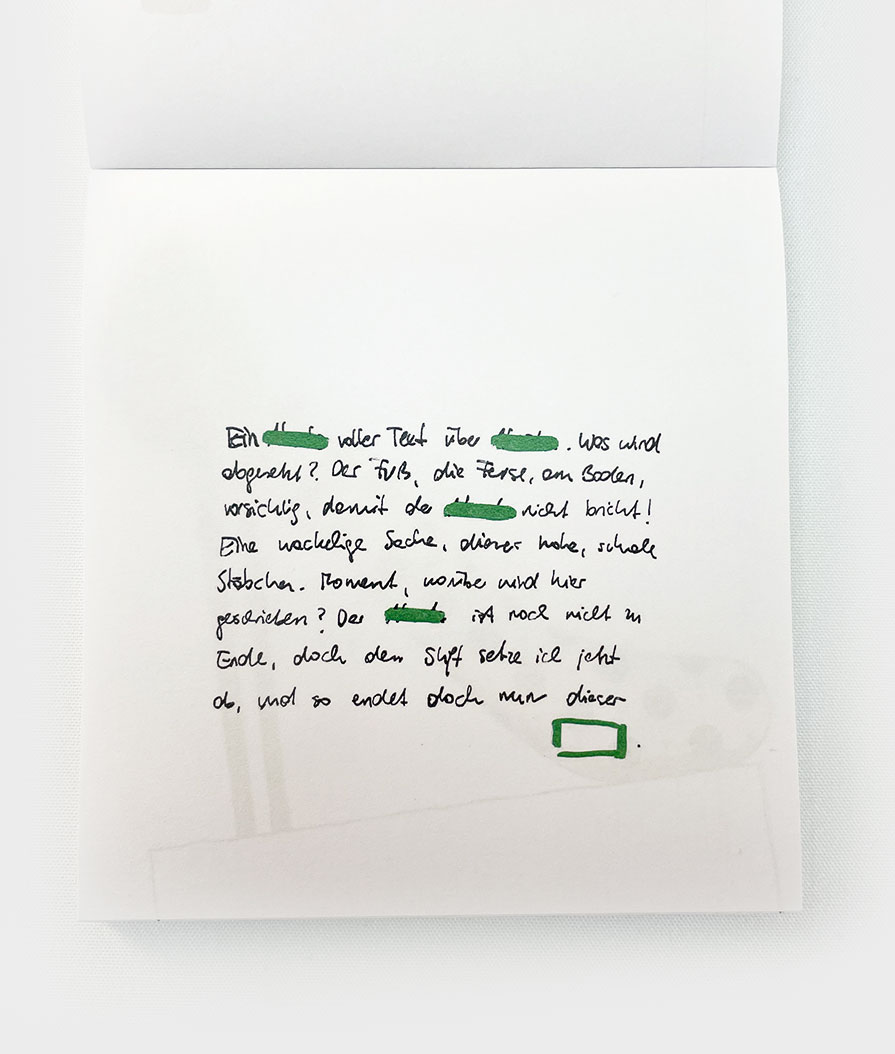 Ein voller Text über . Was wird
abgesetzt? Der Fuß, die Ferse, am Boden,
vorsichtig, damit der nicht bricht!
Eine wackelige Sache, dieses hohe, schmale
Stäbchen. Moment, worüber wird hier
geschrieben? Der ist noch nicht zu
Ende, doch den Stift setze ich jetzt
ab, und so endet doch nun dieser
.